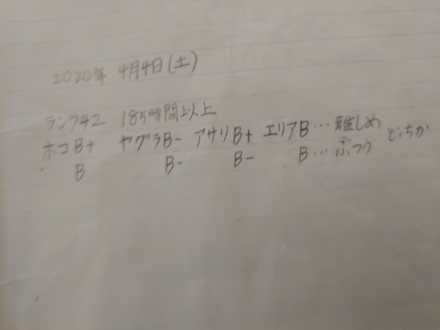 2020年 4月4日(土)
ランク42 185時間以上
ホコB+ ヤグラB- アサリB+ エリアB… 難しめ
B B- B- B… ふつう どっちか